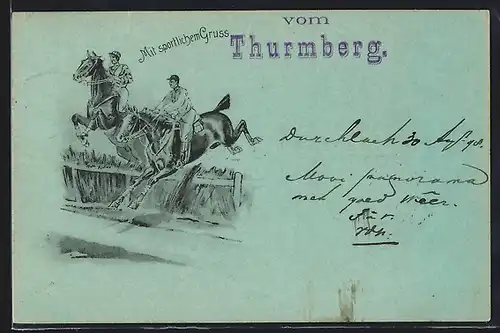 Mit sportlichem Gruss
vom
Thurmberg.
Durlach 30 Aug 98.
Mooi panorama
met goed weer.